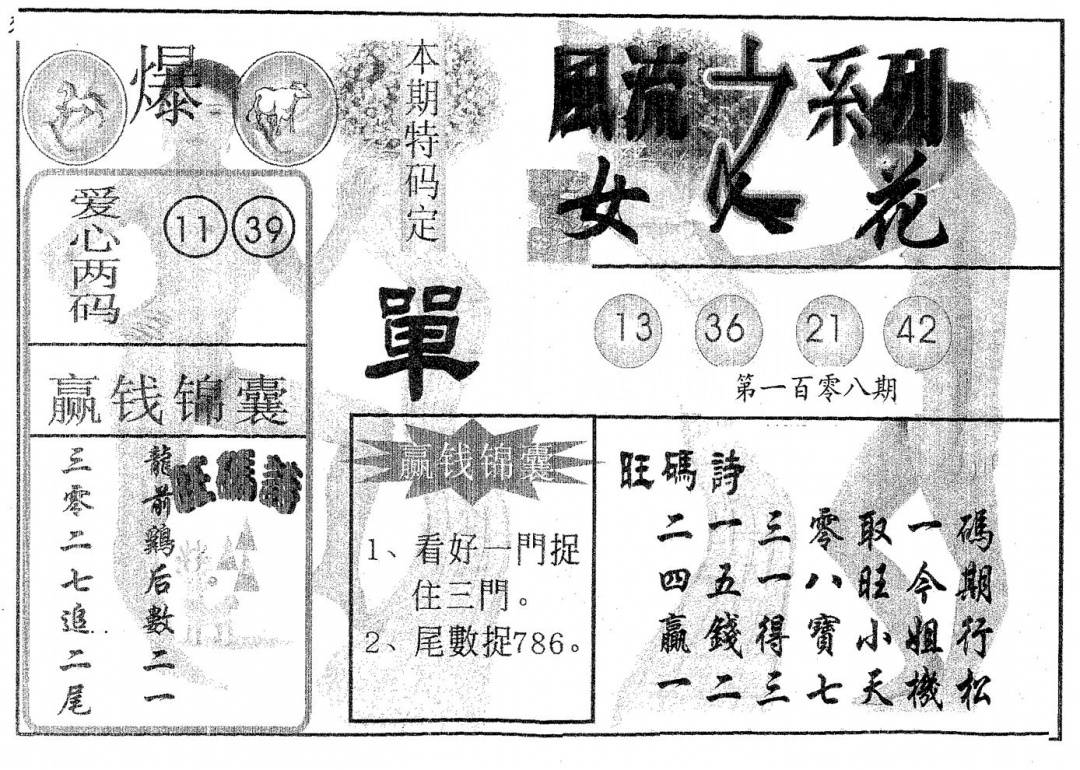 爆
本期特码定
單
風流之系列
女人花
爱心两码
11 39
赢钱锦囊
旺碼詩
龍前鷄后數二一
三零二七追二尾
13 36 21 42
第一百零八期
赢钱锦囊
1、看好一門捉
住三門。
2、尾數捉786。
旺碼詩
碼期行松
一今姐機
取旺小天
零八寶七
三一得三
一五錢二
二四贏一